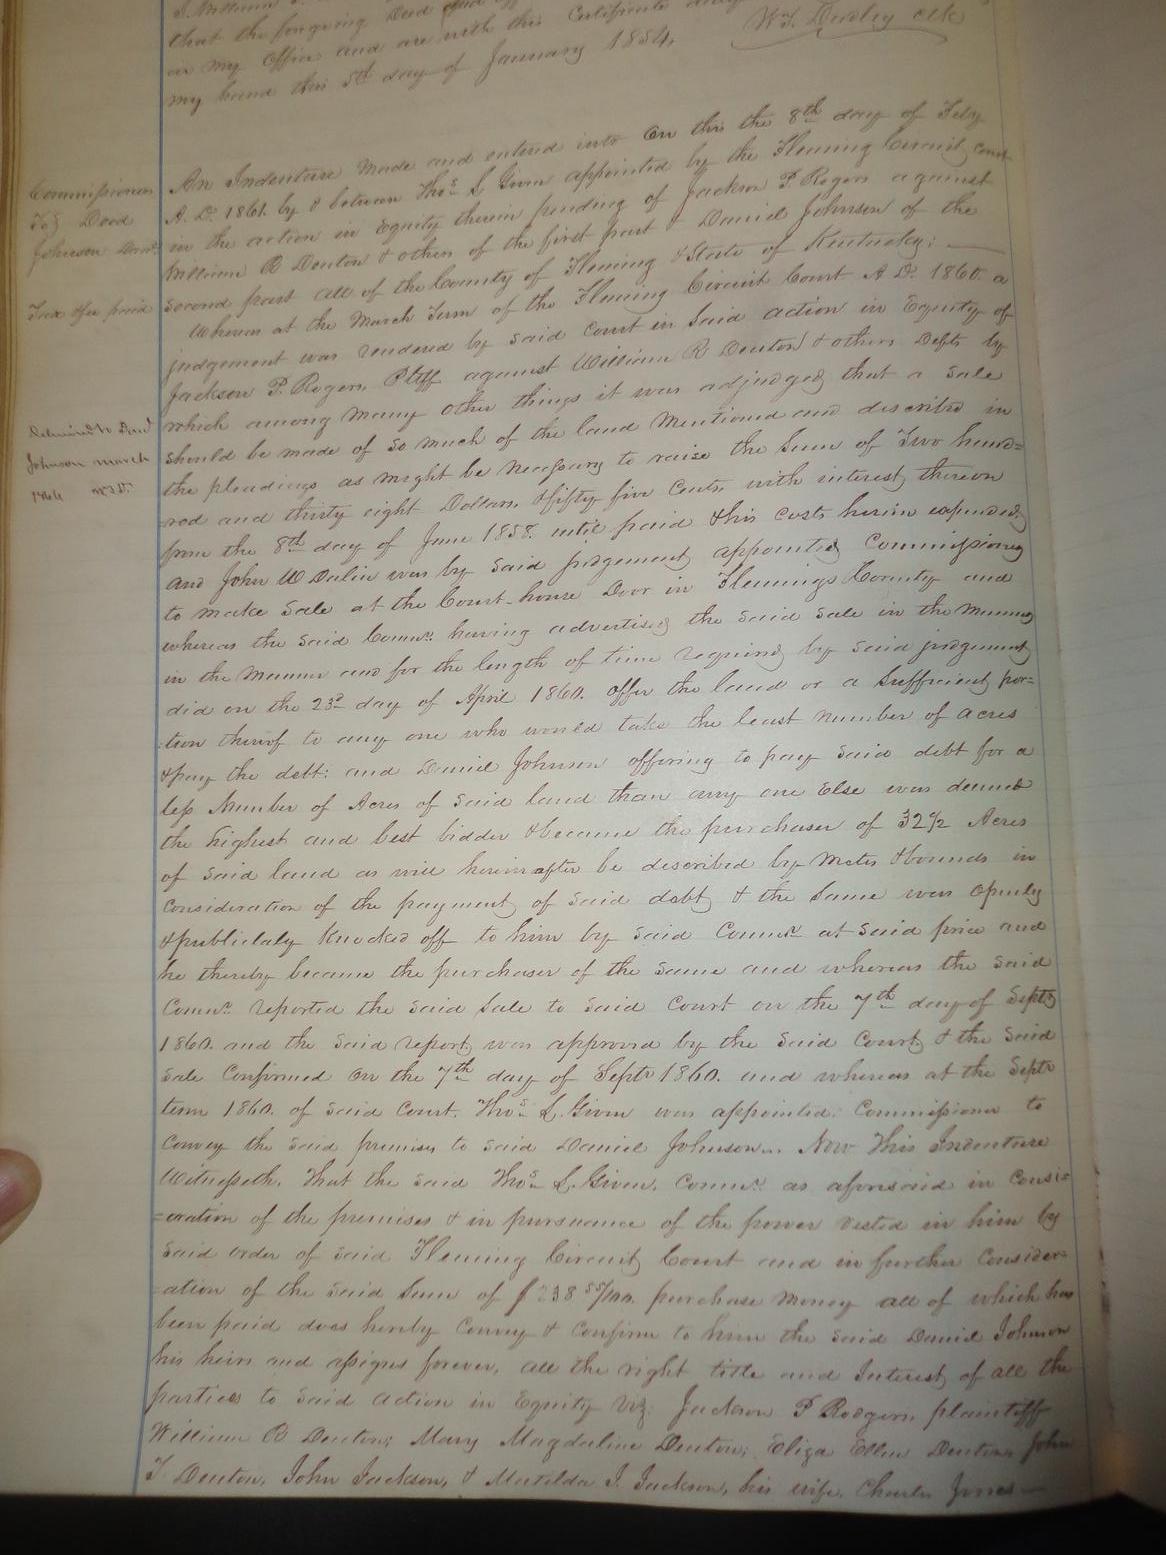 that the foregoing Deed
in my Office and are with this Certificate
my hand this 5th day of January 1854.
W.T. Dudley clk
Commissioner
To} Deed
Johnson Danl
Tax & fee paid
Delivered to Danl
Johnson march
1864
An Indenture Made and entered into On this the 8th day of Feby
A. D. 1861. by & between Thos. L Given appointed by the Fleming Circuit Court
in the action in Equity therein pending of Jackson P. Rogers against
William R Denton & others of the first part & Daniel Johnson of the
second part all of the County of Fleming & State of Kentucky:
Whereas at the March Term of the Fleming Circuit Court A. D. 1860. a
judgement was rendered by said Court in said action in Equity of
Jackson P. Rogers. Pltff against William R Denton & others Defts by
which among many other things it was adjudged that a sale
should be made of so much of the land Mentioned and described in
the pleadings as might be necessary to raise the Sum of Two hund=
red and thirty eight Dollars. & fifty five Cents. with interest thereon
from the 8th day of June 1858. until paid & his costs herein expended
and John W Dulin was by said judgement appointed Commissioner
to make sale at the Court-house Door in Flemings County and
whereas the said Commr. having advertised the said sale in the Manner
in the Manner and for the length of time required by said judgement
did on the 23rd day of April 1860. offer the land or a sufficient por=
tion thereof to any one who would take the least number of acres
& pay the debt: and Daniel Johnson offering to pay said debt for a
less Number of Acres of said land than any one Else was deemed
the highest and best bidder & became the purchaser of 32 1/2 Acres
of said land as will hereinafter be described by Metes & bounds in
Consideration of the payment of said debt & the same was openly
& publiclaly Knocked off to him by said Commr. at said price and
he thereby became the purchaser of the same and whereas the said
Commr. reported the said Sale to said Court on the 7th day of Septr
1860. and the said report was approved by the said Court & the said
sale Confirmed On the 7th day of Septr 1860. and whereas at the Septr
term 1860. of said Court. Thos. L. Given was appointed. Commissioner to
Convey the said premises to said Daniel Johnson. Now This Indenture
Witnesseth. That the said Thos. L. Given. Commr. as aforesaid in Consi=
=eration of the premises & in pursuance of the power vested in him by
said order of said Fleming Circuit Court and in further Consider=
=ation of the said Sum of $238 55/100. purchase Money all of which has
been paid does hereby Convey & Confirm to him the said Daniel Johnson
his heirs and assigns forever, all the right title and Interest of all the
parties to said action in Equity viz: Jackson P Rodgers, plaintiff
William R Denton; Mary Magdaline Denton; Eliza Ellen Denton, John
T Denton, John Jackson, & Matilda J. Jackson, his wife, Charles Jones